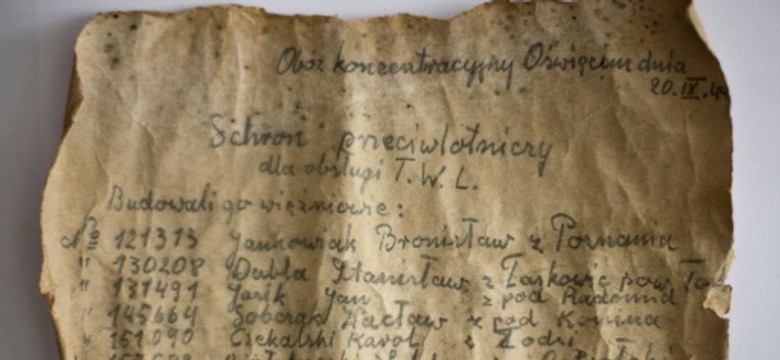 Obóz koncentracyjny Oświęcim dnia
20.IX.4
Schron przeciwlotniczy
dla obsługi T.W.L.
Budowali go więźniowie:
No 121313 Jankowiak Bronisław z Poznania
" 130208 Dubla Stanisław z Łaskowic pow. Ta
" 131491 Jasik Jan z pod Radomia
" 145664 Sobczak Wacław z pod Konina
" 151090 Czekalski Karol z Łodzi